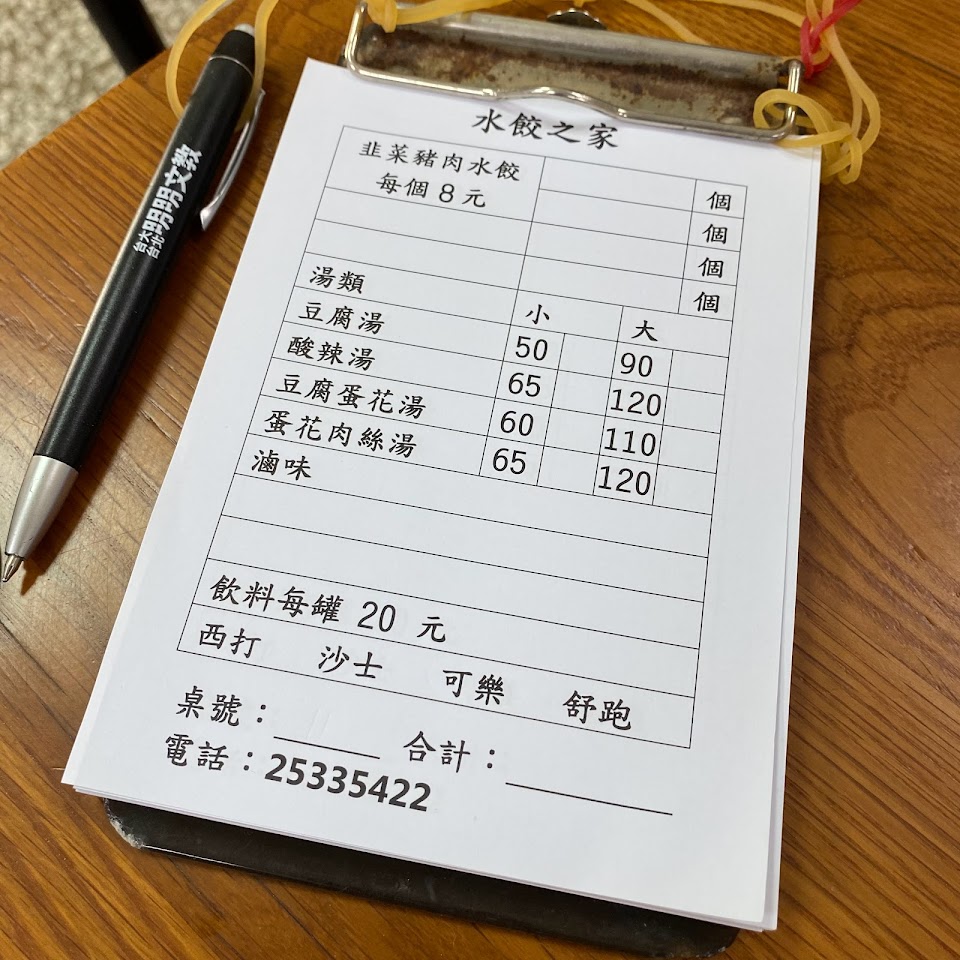 水餃之家
韭菜豬肉水餃
每個 8 元
個
個
個
個
湯類 小 大
豆腐湯 50 90
酸辣湯 65 120
豆腐蛋花湯 60 110
蛋花肉絲湯 65 120
滷味
飲料每罐 20 元
西打 沙士 可樂 舒跑
桌號： 合計：
電話：25335422
台大
台北
明明文教